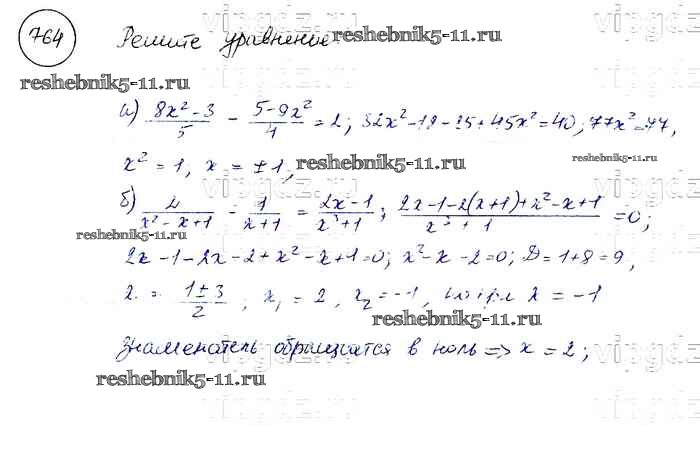 764 Решите уравнение reshebnik5-11.ru
reshebnik5-11.ru
vipgdz
а) (8x² - 3)/5 - (5-9x²)/4 = 2; 32x² - 12 - 25 + 45x² = 40; 77x² = 77,
x² = 1, x = ±1; reshebnik5-11.ru
reshebnik5-11.ru
б) 2/(x² - x + 1) - 1/(x+1) = (2x-1)/(x³+1); (2x-1-2(x+1)+x²-x+1)/(x³+1) = 0;
reshebnik5-11.ru
2x - 1 - 2x - 2 + x² - x + 1 = 0; x² - x - 2 = 0; D = 1+8 = 9,
x = (1±3)/2; x₁ = 2, x₂ = -1, x = -1
reshebnik5-11.ru
знаменатель обращается в ноль => x = 2;
reshebnik5-11.ru